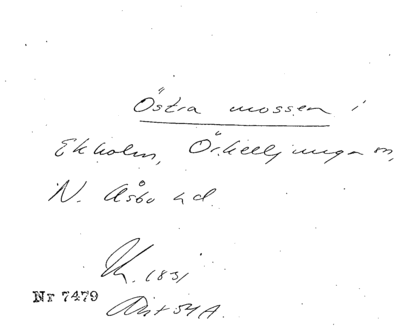 Östra mossen i
Ekholm, Örkelljunga sn,
N. Åsbo hd.
K. 1831
Nr 7479
Akt 54A.